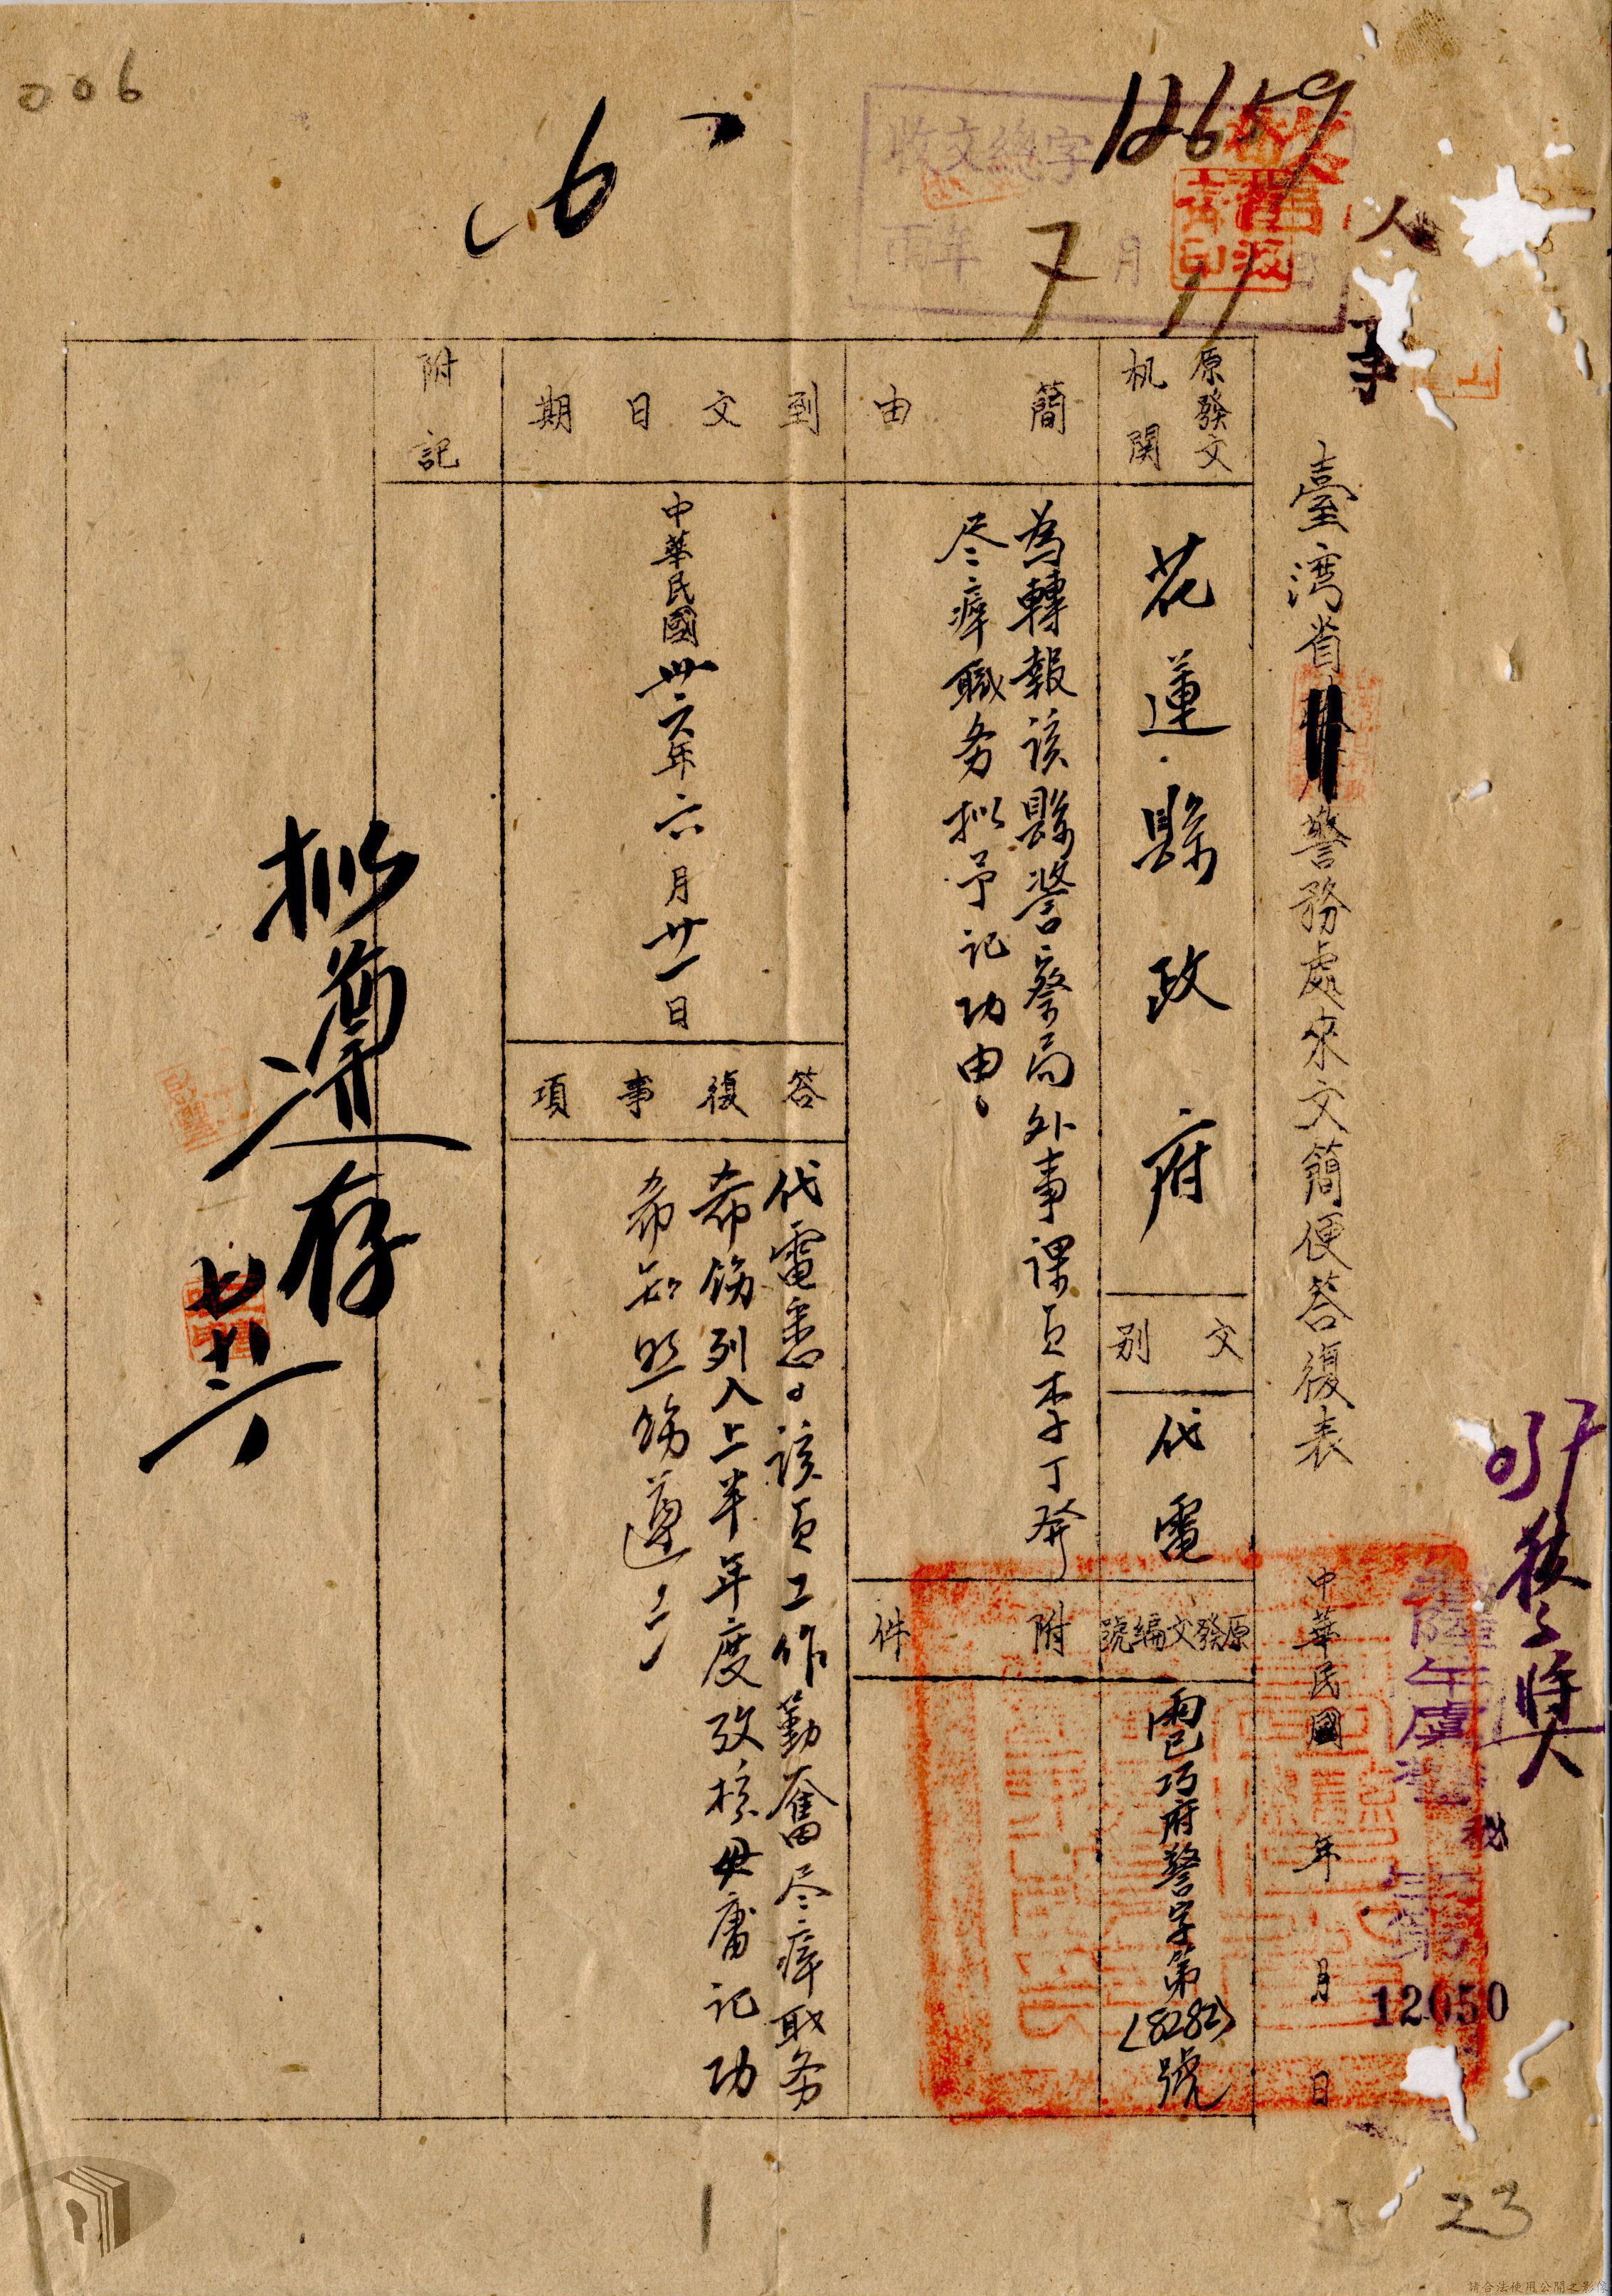 006
6
12659
收文總字
年 7 月 11
人事
臺湾省警務處來文簡便答復表
中華民國 年 月 日
12050
原發文机関
花蓮縣政府
文別
代電
原發文編號
巧府警字第(8282)號
簡由
為轉報該縣警察局外事課員李丁
尽瘁職务拟予记功由
附件
到文日期
中華民國卅六年六月廿一日
答復事項
代電悉。該員工作勤奮尽瘁职务
希飭列入上半年度攷核毋庸记功
希知照飭遵
附記
拟遵存
23
請合法使用公開之影像